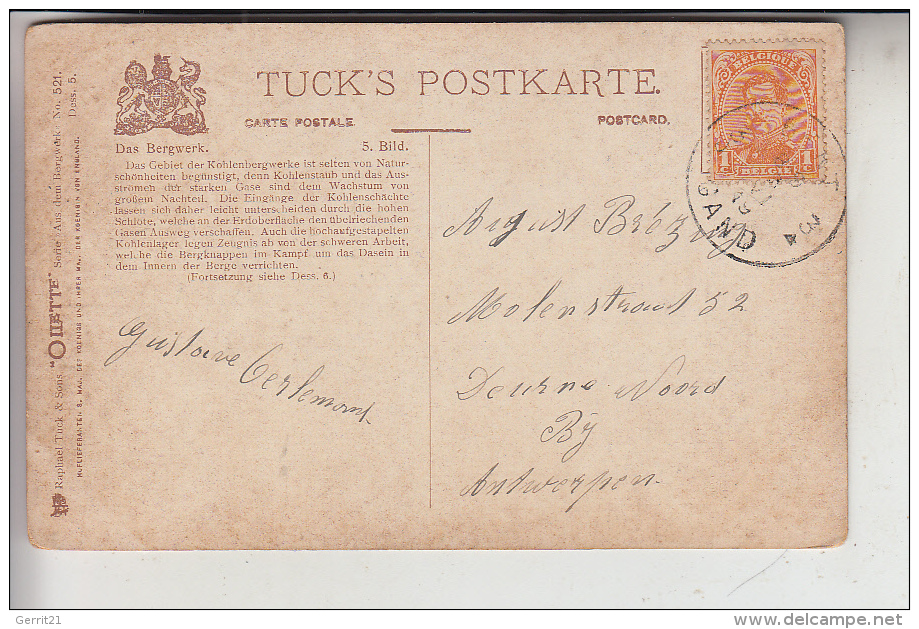 TUCK'S POSTKARTE.
CARTE POSTALE
POSTCARD.
Das Bergwerk. 5. Bild.
Das Gebiet der Kohlenbergwerke ist selten von Natur-
schönheiten begünstigt, denn Kohlenstaub und das Aus-
strömen der starken Gase sind dem Wachstum von
großem Nachteil. Die Eingänge der Kohlenschächte
lassen sich daher leicht unterscheiden durch die hohen
Schlöte, welche an der Erdoberfläche den übelriechenden
Gasen Ausweg verschaffen. Auch die hochaufgestapelten
Kohlenlager legen Zeugnis ab von der schweren Arbeit,
welche die Bergknappen im Kampf um das Dasein in
dem Innern der Berge verrichten.
(Fortsetzung siehe Dess. 6.)
Gustave
Oerlemans
August
Molenstraat 52
Deurne Noord
Bij
Antwerpen.
BELGIQUE
1c 1c
BELGIE
GAND
Raphael Tuck & Sons "OILETTE" Serie Aus dem Bergwerk No. 521.
Dess. 5.
HOFLIEFERANTEN S. MAJ. DES KOENIGS UND IHRER MAJ. DER KOENIGIN VON ENGLAND.
Gerrit21
delcampe.net